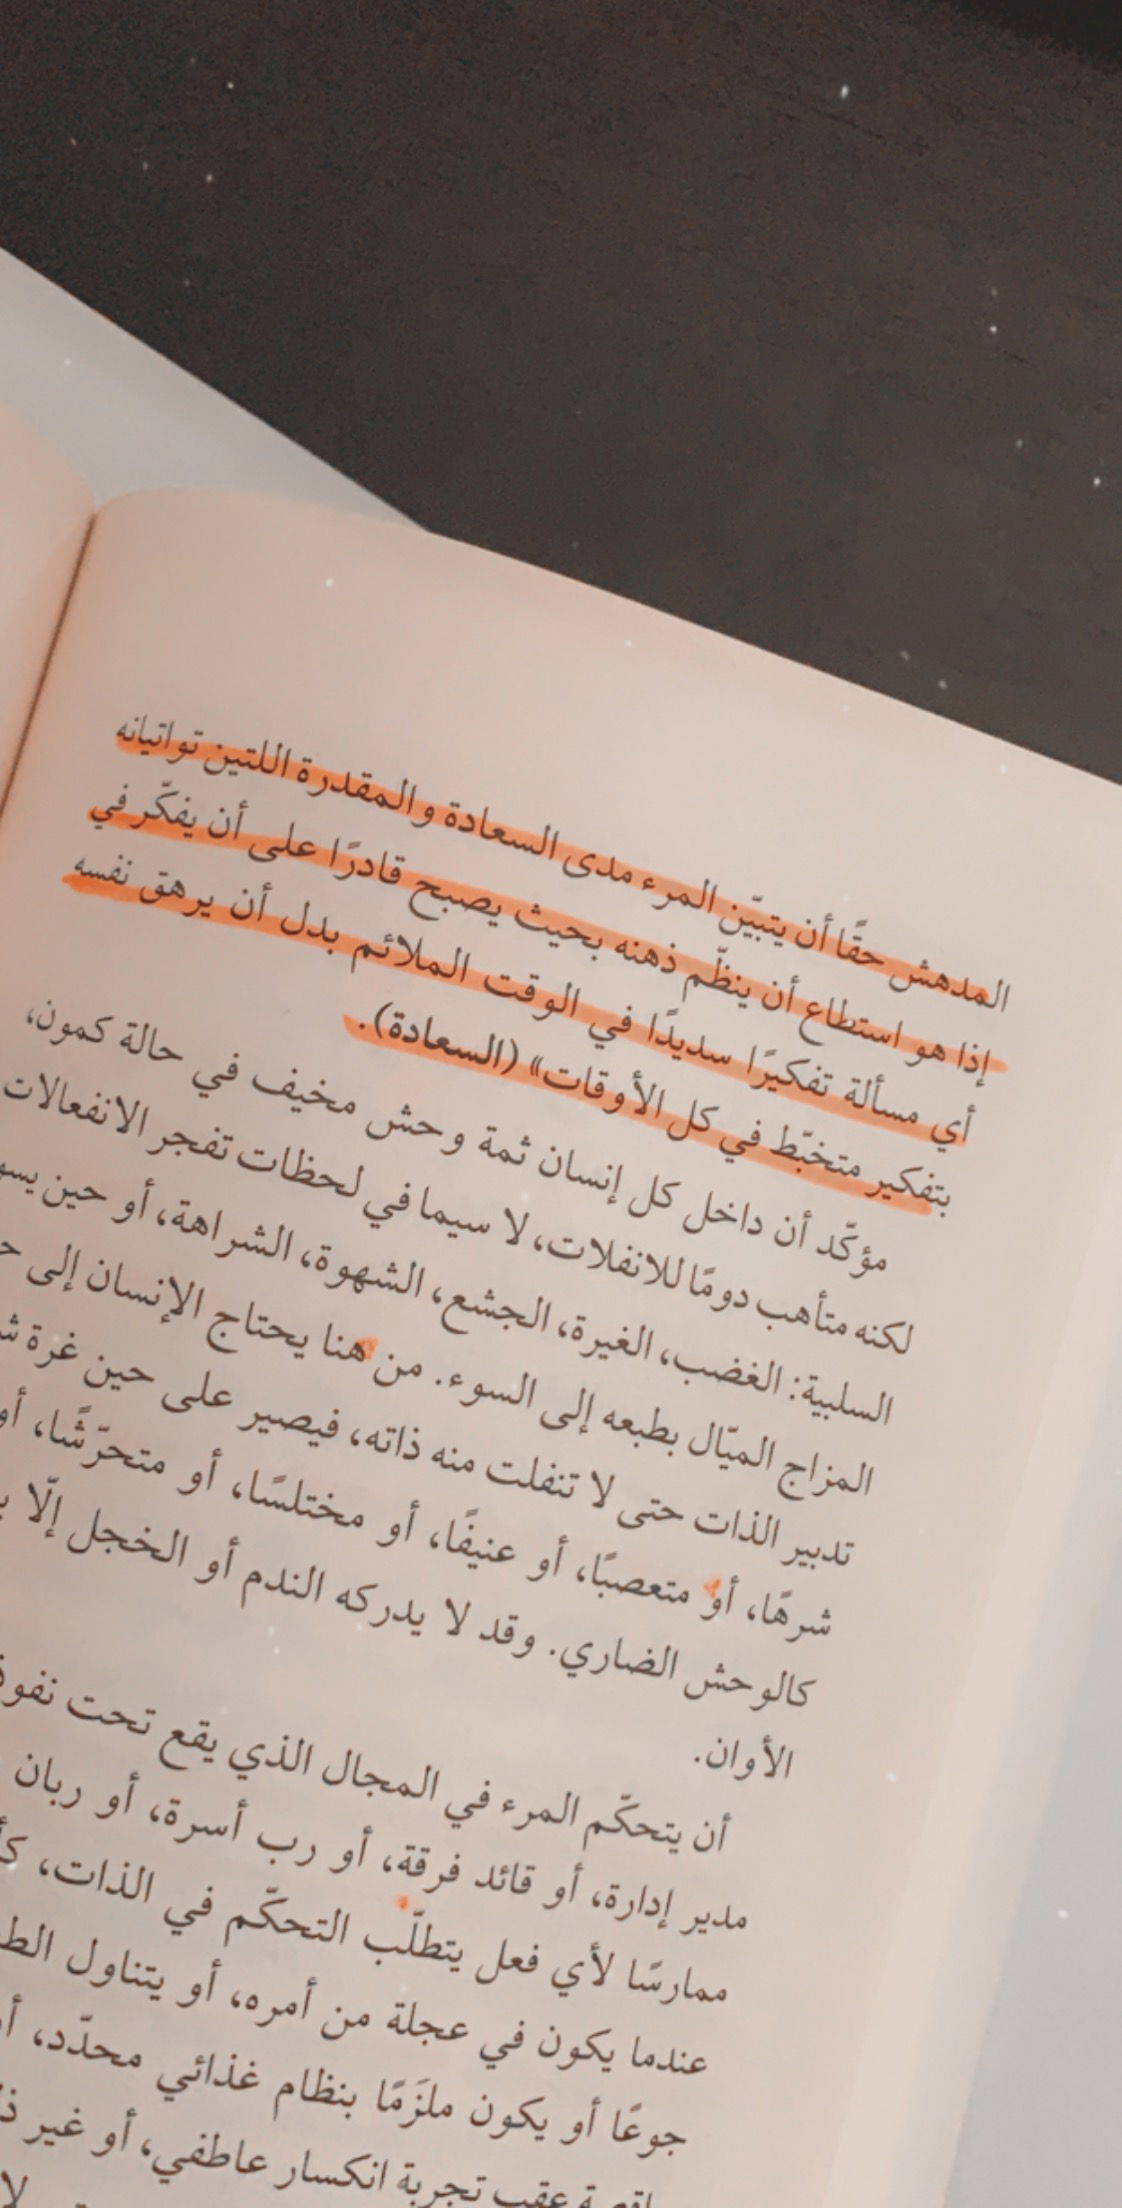 المدهش حقًا أن يتبيّن المرء مدى السعادة والمقدرة اللتين تواتيانه
إذا هو استطاع أن ينظّم ذهنه بحيث يصبح قادرًا على أن يفكّر في
أي مسألة تفكيرًا سديدًا في الوقت الملائم بدل أن يرهق نفسه
بتفكير متخبّط في كل الأوقات» (السعادة).
مؤكّد أن داخل كل إنسان ثمة وحش مخيف في حالة كمون،
لكنه متأهب دومًا للانفلات، لا سيما في لحظات تفجر الانفعالات
السلبية: الغضب، الغيرة، الجشع، الشهوة، الشراهة، أو حين
المزاج الميّال بطبعه إلى السوء. من هنا يحتاج الإنسان إلى
تدبير الذات حتى لا تنفلت منه ذاته، فيصير على حين غرة
شرهًا، أو متعصبًا، أو عنيفًا، أو مختلسًا، أو متحرّشًا، أو
كالوحش الضاري. وقد لا يدركه الندم أو الخجل إلّا
الأوان.
أن يتحكّم المرء في المجال الذي يقع تحت
مدير إدارة، أو قائد فرقة، أو رب أسرة، أو ربان
ممارسًا لأي فعل يتطلّب التحكّم في الذات،
عندما يكون في عجلة من أمره، أو يتناول
جوعًا أو يكون ملزَمًا بنظام غذائي محدّد،
عقب تجربة انكسار عاطفي، أو غير